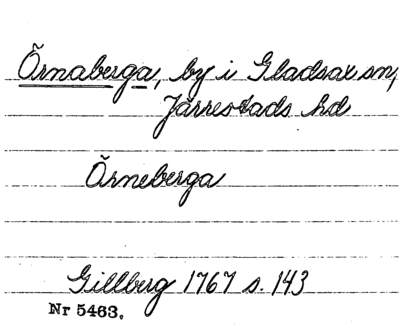 Örnaberga, by i Gladsax sn,
Järrestads hd
Örneberga
Gillberg 1767 s. 143
Nr 5463.